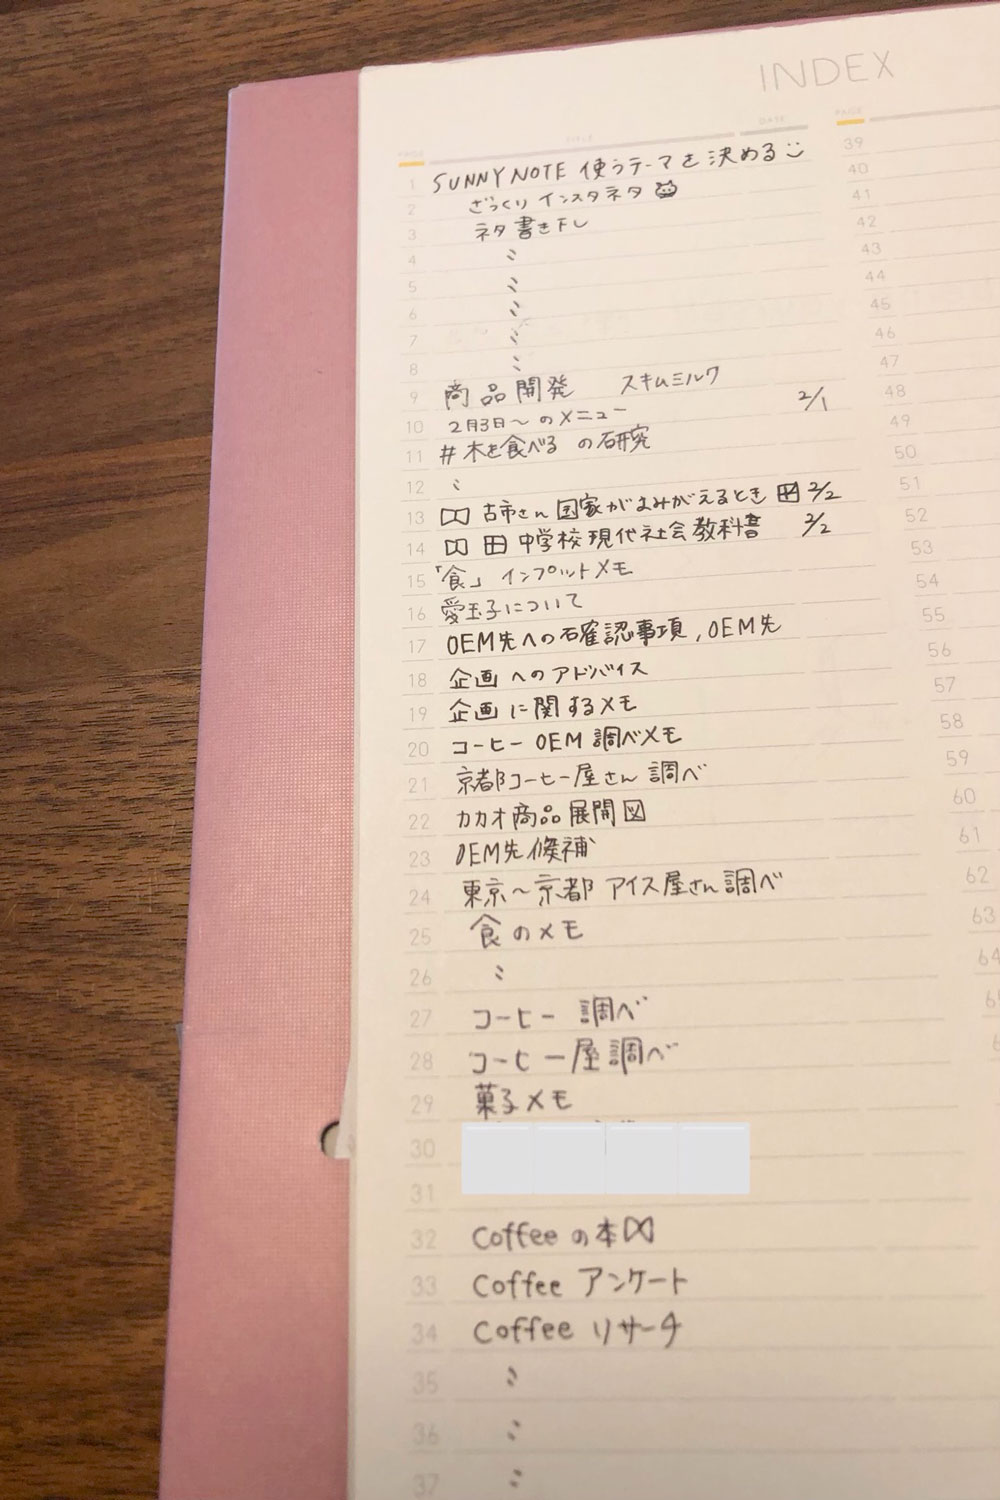 INDEX
PAGE TITLE DATE PAGE
1 SUNNY NOTE 使うテーマを決める 39
2 ざっくり インスタネタ 40
3 ネタ書き下し 41
4 〃 42
5 〃 43
6 〃 44
7 〃 45
8 〃 46
9 商品開発 スキムミルク 47
10 2月3日〜のメニュー 2/1 48
11 #木を食べる の研究 49
12 〃 50
13 古市さん 国家がよみがえるとき 2/2 51
14 中学校現代社会教科書 2/2 52
15 「食」インプットメモ 53
16 愛玉子について 54
17 OEM先への確認事項,OEM先 55
18 企画へのアドバイス 56
19 企画に関するメモ 57
20 コーヒーOEM調べメモ 58
21 京都コーヒー屋さん調べ 59
22 カカオ商品展開図 60
23 OEM先候補 61
24 東京〜京都 アイス屋さん調べ 62
25 食のメモ 63
26 〃 64
27 コーヒー 調べ
28 コーヒー屋調べ
29 菓子メモ
30
31
32 Coffeeの本
33 Coffee アンケート
34 Coffee リサーチ
35 〃
36 〃
37 〃